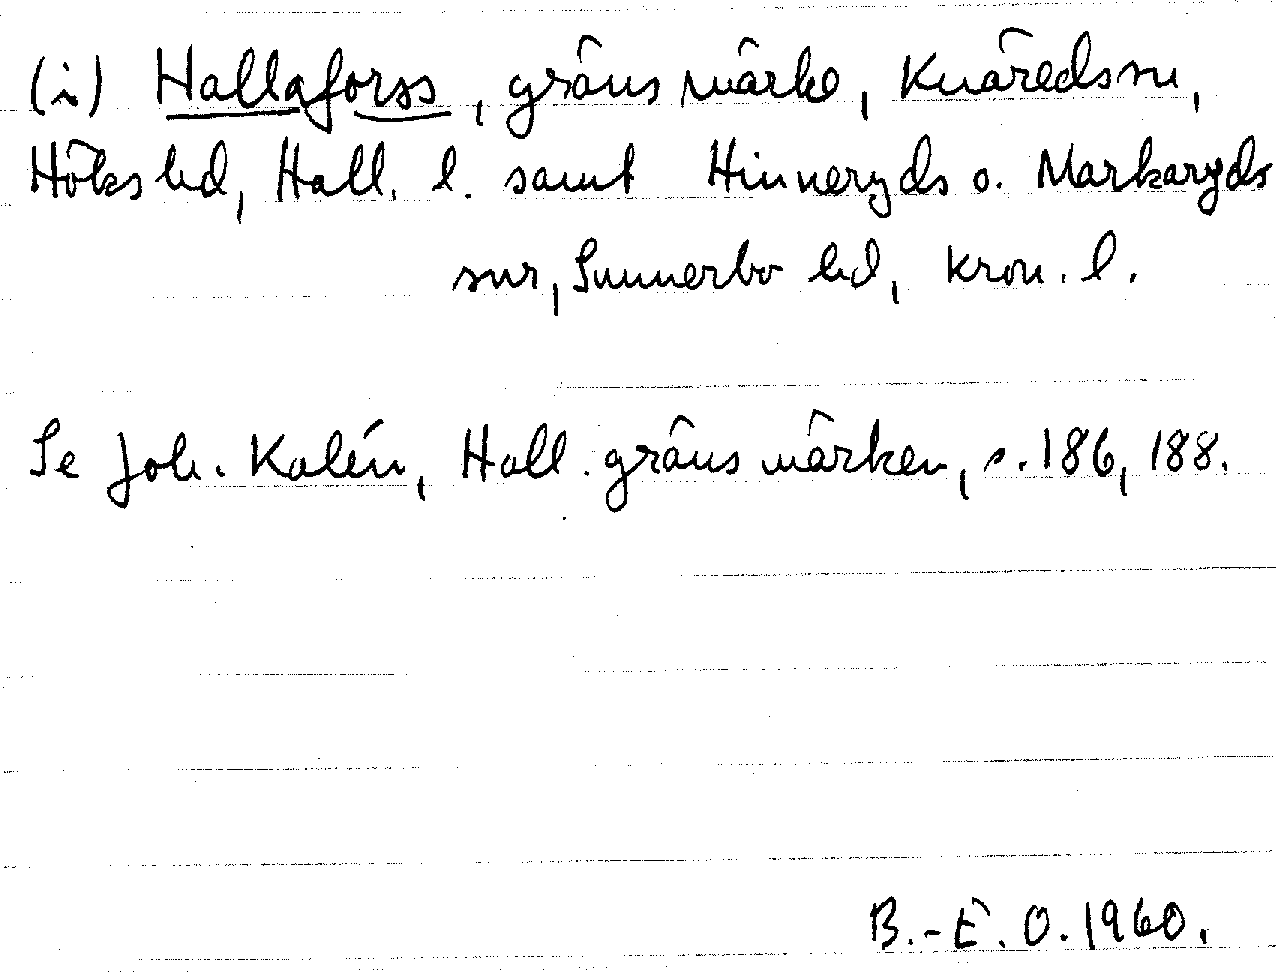 (i) Hallaforss, gränsmärke, Knäreds sn,
Höks hd, Hall. l. samt Hinneryds o. Markaryds
snr, Sunnerbo hd, Kron. l.
Se Joh. Kalén, Hall. gränsmärken, s. 186, 188.
B.-E. O. 1960.